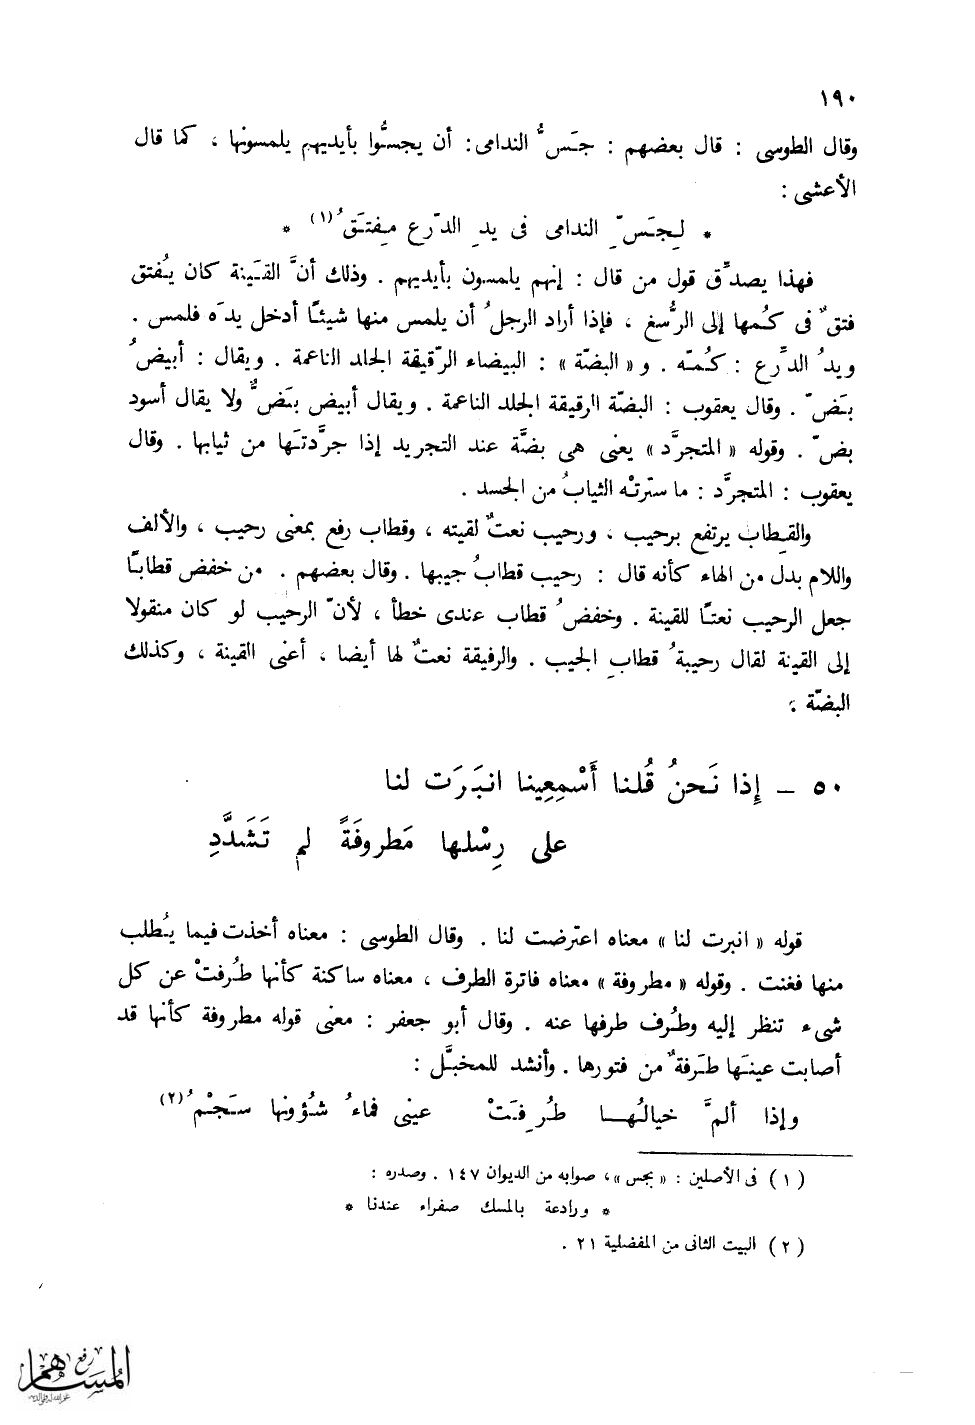 ١٩٠
وقال الطوسى : قال بعضهم : جَسُّ الندامى: أن يجسُّوا بأيديهم يلمسونها ، كما قال
الأعشى :
* لِجَسِّ الندامى فى يدِ الدّرع مِفتَقُ (١) *
فهذا يصدِّق قول من قال : إنهم يلمسون بأيديهم . وذلك أنَّ القَينة كان يُفتق
فتقٌ فى كُمها إلى الرُّسغ ، فإذا أراد الرجلُ أن يلمس منها شيئًا أدخل يدَه فلمس .
ويدُ الدِّرع : كُمّه . و « البضّة » : البيضاء الرّقيقة الجلد الناعمة . ويقال : أبيضُ
بَضّ . وقال يعقوب : البضّة الرقيقة الجلد الناعمة . ويقال أبيض بَضٌّ ولا يقال أسود
بضّ . وقوله « المتجرَّد » يعنى هى بضَّة عند التجريد إذا جرَّدتَها من ثيابها . وقال
يعقوب : المتجرَّد : ما سترتْه الثيابُ من الجسد .
والقِطاب يرتفع برحيب ، ورحيب نعتٌ لقيته ، وقطاب رفع بمعنى رحيب ، والألف
واللام بدل من الهاء كأنه قال : رحيب قطابُ جيبها . وقال بعضهم . من خفض قطابًا
جعل الرحيب نعتًا للقينة . وخفضُ قطاب عندى خطأ ، لأنّ الرحيب لو كان منقولا
إلى القينة لقال رحيبةُ قطابِ الجيب . والرفيقة نعتٌ لها أيضا ، أعنى القينة ، وكذلك
البضّة .
٥٠ – إِذا نَحنُ قُلنا أَسْمِعِينا انبَرَت لنا
على رِسْلها مَطروفَةً لم تَشَدَّدِ
قوله « انبرت لنا » معناه اعترضت لنا . وقال الطوسى : معناه أخذت فيما يُطلب
منها فغنت . وقوله « مطروفة » معناه فاترة الطرف ، معناه ساكنة كأنها طُرفتْ عن كل
شىء تنظر إليه وطُرف طرفها عنه . وقال أبو جعفر : معنى قوله مطروفة كأنها قد
أصابت عينَها طَرفةٌ من فتورها . وأنشد للمخبَّل :
وإذا ألمَّ خيالُهـا طُرِفَتْ عينى فماءُ شُؤونها سَجْمُ (٢)
( ١ ) فى الأصلين : « بجس » ، صوابه من الديوان ١٤٧ . وصدره :
* ورادعة بالمسك صفراء عندنا *
( ٢ ) البيت الثانى من المفضلية ٢١ .